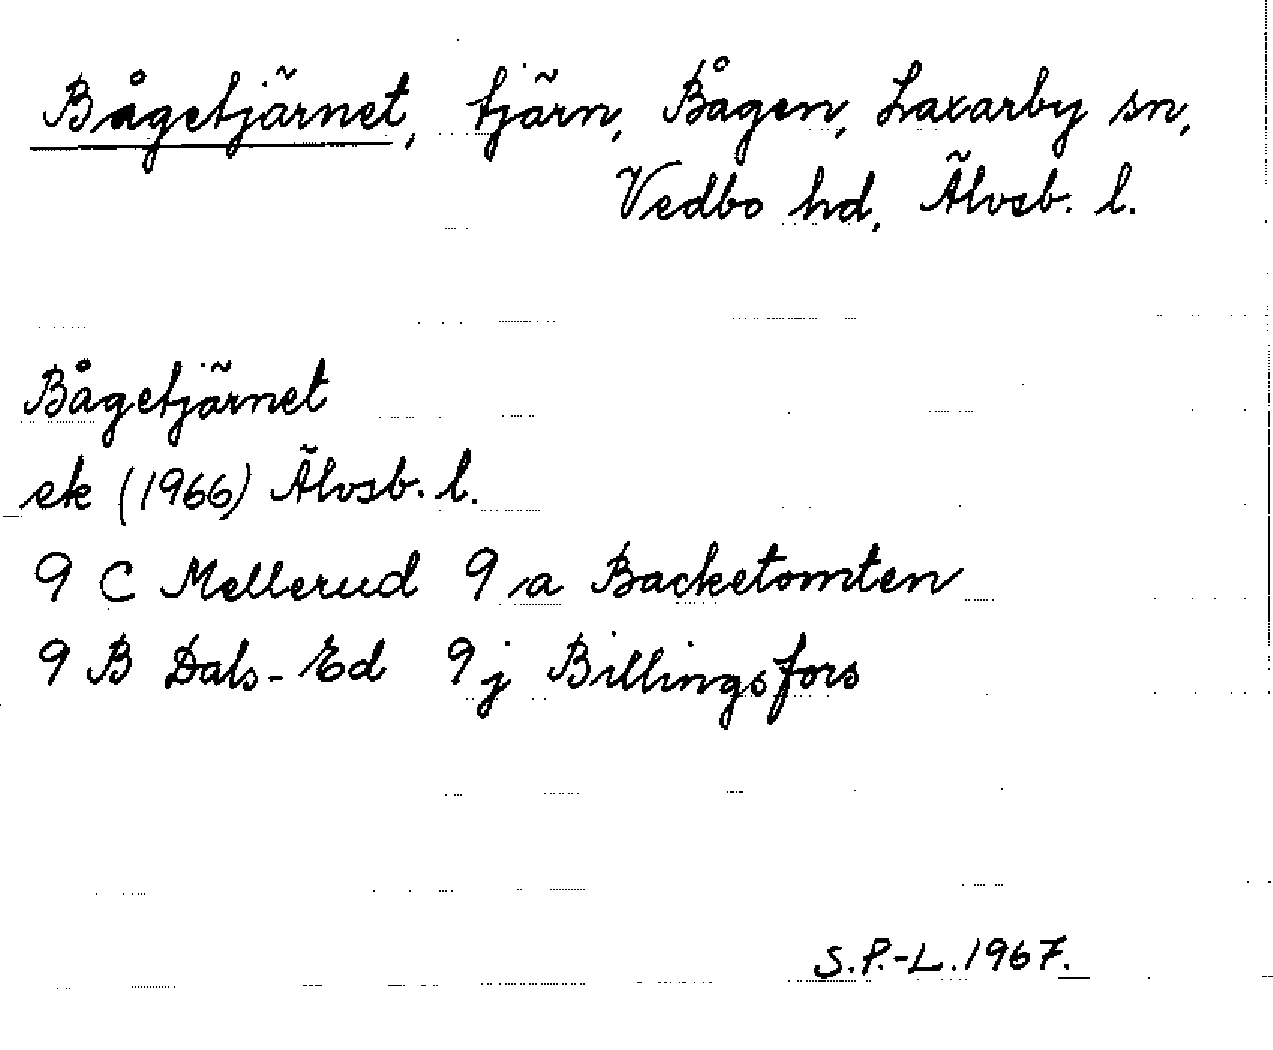 Bågetjärnet, tjärn, Bågen, Laxarby sn,
Vedbo hd, Älvsb. l.
Bågetjärnet
ek (1966) Älvsb. l.
9 C Mellerud 9 a Backetomten
9 B Dals-Ed 9 j Billingsfors
S.P.-L. 1967.